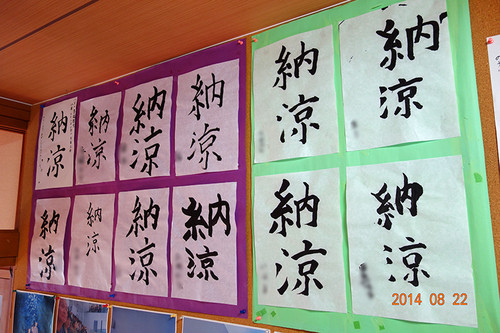 納涼
納涼
納涼
納涼
納涼
納涼
納涼
納涼
納涼
納涼
納涼
納涼
2014 08 22